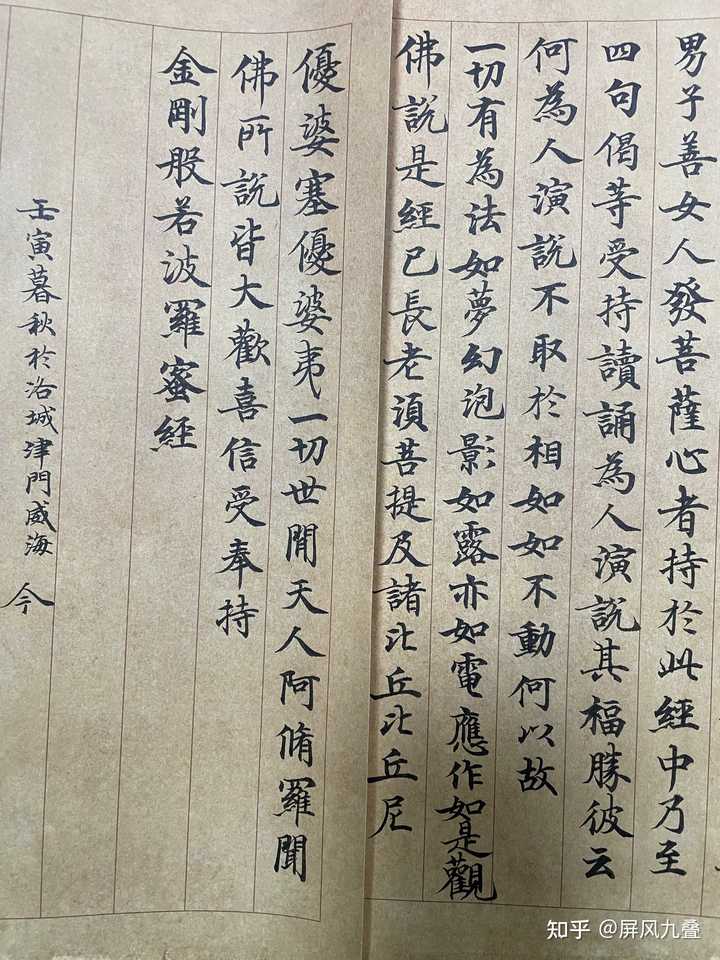 男子善女人發菩薩心者持於此經中乃至
四句偈等受持讀誦為人演說其福勝彼云
何為人演說不取於相如如不動何以故
一切有為法如夢幻泡影如露亦如電應作如是觀
佛說是經已長老須菩提及諸比丘比丘尼
優婆塞優婆夷一切世間天人阿脩羅聞
佛所說皆大歡喜信受奉持
金剛般若波羅蜜經
壬寅暮秋於洛城津門威海 今
知乎 @屏风九叠